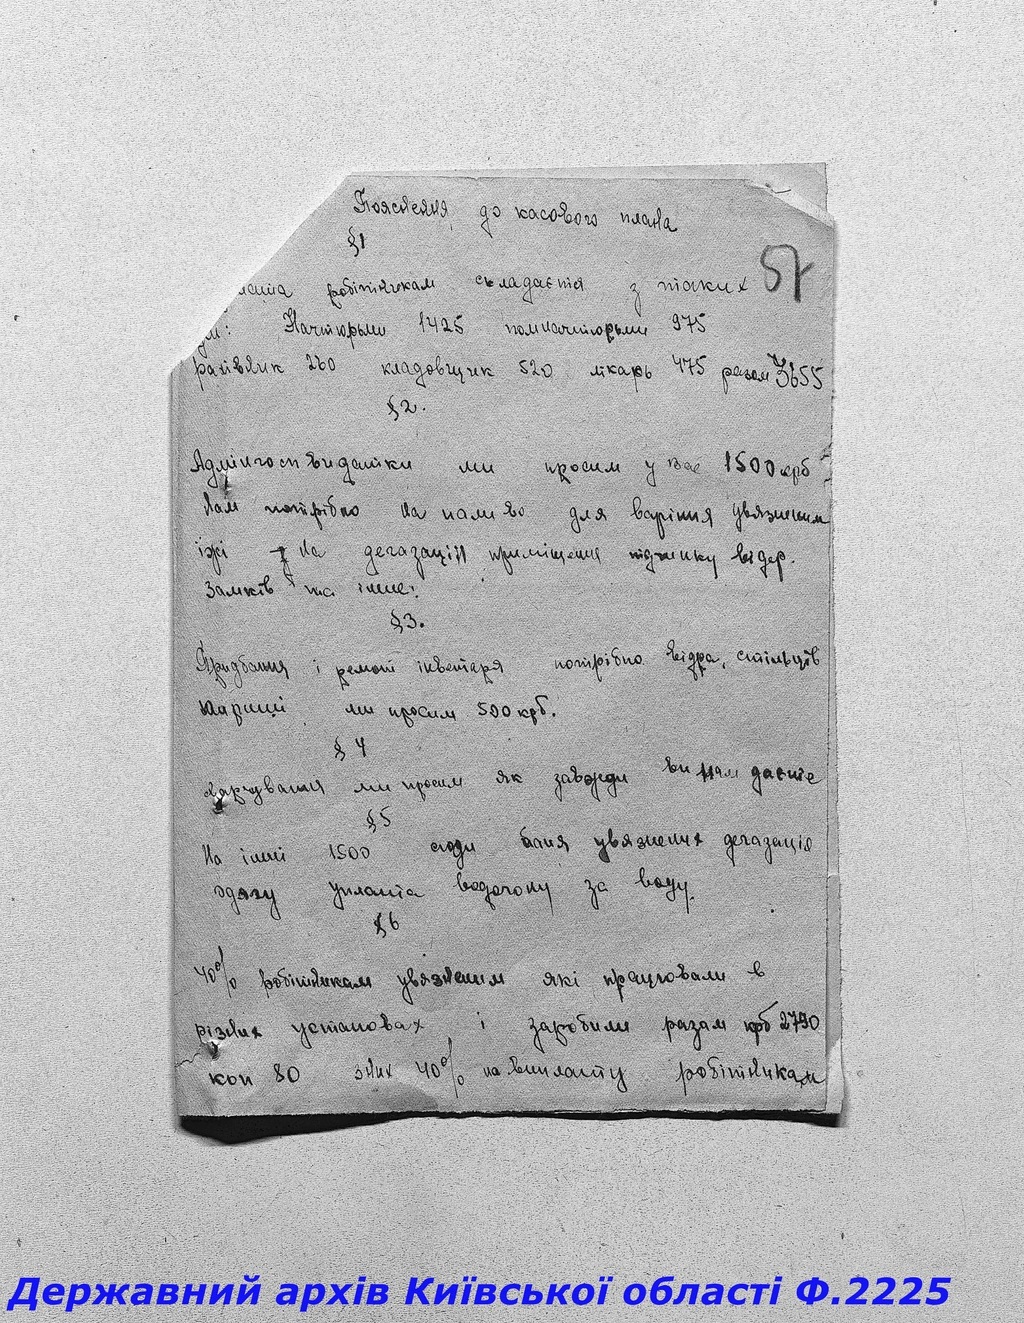 Пояснення до касового плана
§1
57
робітникам складается з таких
Начтюрьми 1425 помначтюрьми 975
рахівник 260 кладовщик 520 лікарь 475 разом 3655
§2.
Адмінгосп видатки ми просим у вас 1500 крб
Нам потрібно на паливо для варіння увязненим
їжі на дегазації приміщення підчинку відер.
Замків та інше.
§3.
Придбання і ремонт інвентаря потрібно відра, стільців
ми просим 500 крб.
§4
харчування ми просим як завжди ви нам даєте
§5
На інші 1500 сюди баня увязнених дегазація
одягу уплата водогону за воду.
§6
40% робітникам увязненим які працювали в
різних установах і заробили разом крб 2790
коп 80 з них 40% на виплату робітникам
Державний архів Київської області Ф.2225